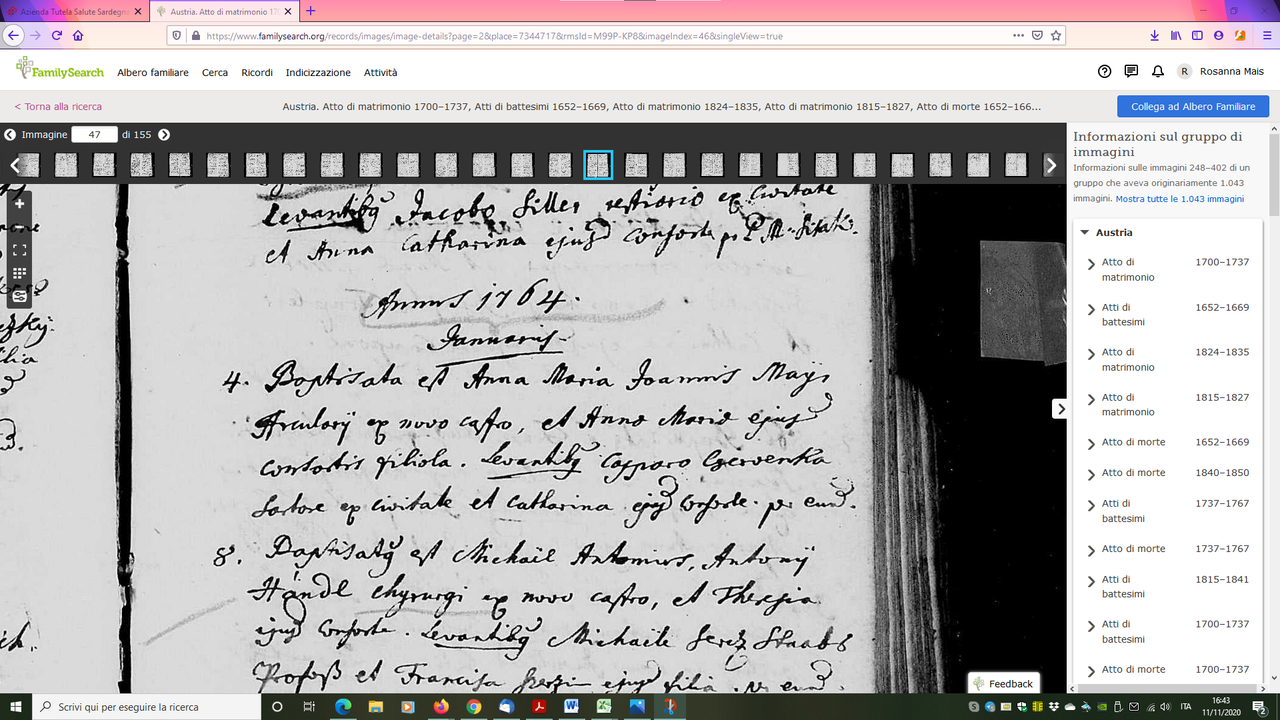 Azienda Tutela Salute Sardegna
Austria. Atto di matrimonio 170
https://www.familysearch.org/records/images/image-details?page=2&place=7344717&rmsId=M99P-KP8&imageIndex=46&singleView=true
FamilySearch
Albero familiare
Cerca
Ricordi
Indicizzazione
Attività
R
Rosanna Mais
< Torna alla ricerca
Austria. Atto di matrimonio 1700–1737, Atti di battesimi 1652–1669, Atto di matrimonio 1824–1835, Atto di matrimonio 1815–1827, Atto di morte 1652–166...
Collega ad Albero Familiare
Immagine 47 di 155
Levantibg Jacobo Siller vestiario ex Civitate
et Anna Catharina ejusd consorte pr P. M.
Annus 1764.
Januaris
4. Baptisata est Anna Maria Joannis Mays
Arcularij ex novo castro, et Annæ Mariæ ejusd
consortis filiola. Levantibg Casparo Czerwenka
sartore ex civitate et Catharina ejusd Consorte. per eund.
8. Baptisatg est Michaël Antonius, Antonij
Händl chyrurgi ex novo castro, et Theresia
ejusd Consorte. Levantibg Michaële
Profoß et Francisca ejusd filia. per eund.
Informazioni sul gruppo di
immagini
Informazioni sulle immagini 248–402 di un
gruppo che aveva originariamente 1.043
immagini. Mostra tutte le 1.043 immagini
Austria
Atto di matrimonio 1700–1737
Atti di battesimi 1652–1669
Atto di matrimonio 1824–1835
Atto di matrimonio 1815–1827
Atto di morte 1652–1669
Atto di morte 1840–1850
Atti di battesimi 1737–1767
Atto di morte 1737–1767
Atti di battesimi 1815–1841
Atti di battesimi 1700–1737
Atto di morte 1700–1737
Feedback
Scrivi qui per eseguire la ricerca
ITA
16:43
11/11/2020
2